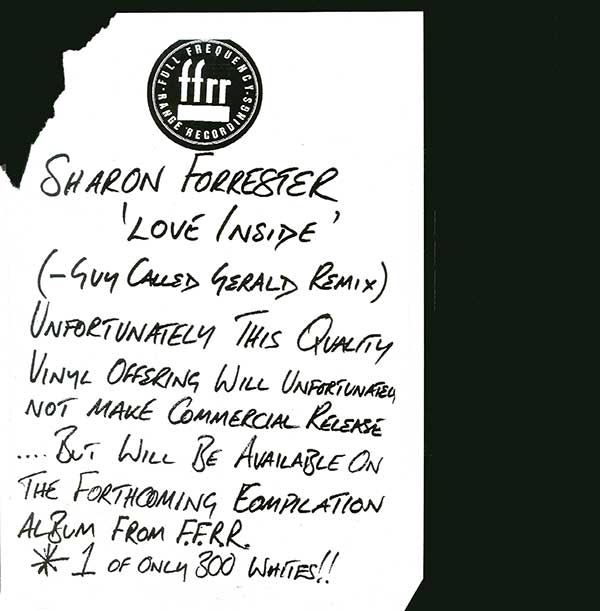 FULL FREQUENCY
ffrr
RANGE RECORDINGS
SHARON FORRESTER
'LOVE INSIDE'
(-GUY CALLED GERALD REMIX)
UNFORTUNATELY THIS QUALITY
VINYL OFFERING WILL UNFORTUNATELY
NOT MAKE COMMERCIAL RELEASE
.... BUT WILL BE AVAILABLE ON
THE FORTHCOMING COMPILATION
ALBUM FROM F.F.R.R.
* 1 OF ONLY 300 WHITES!!